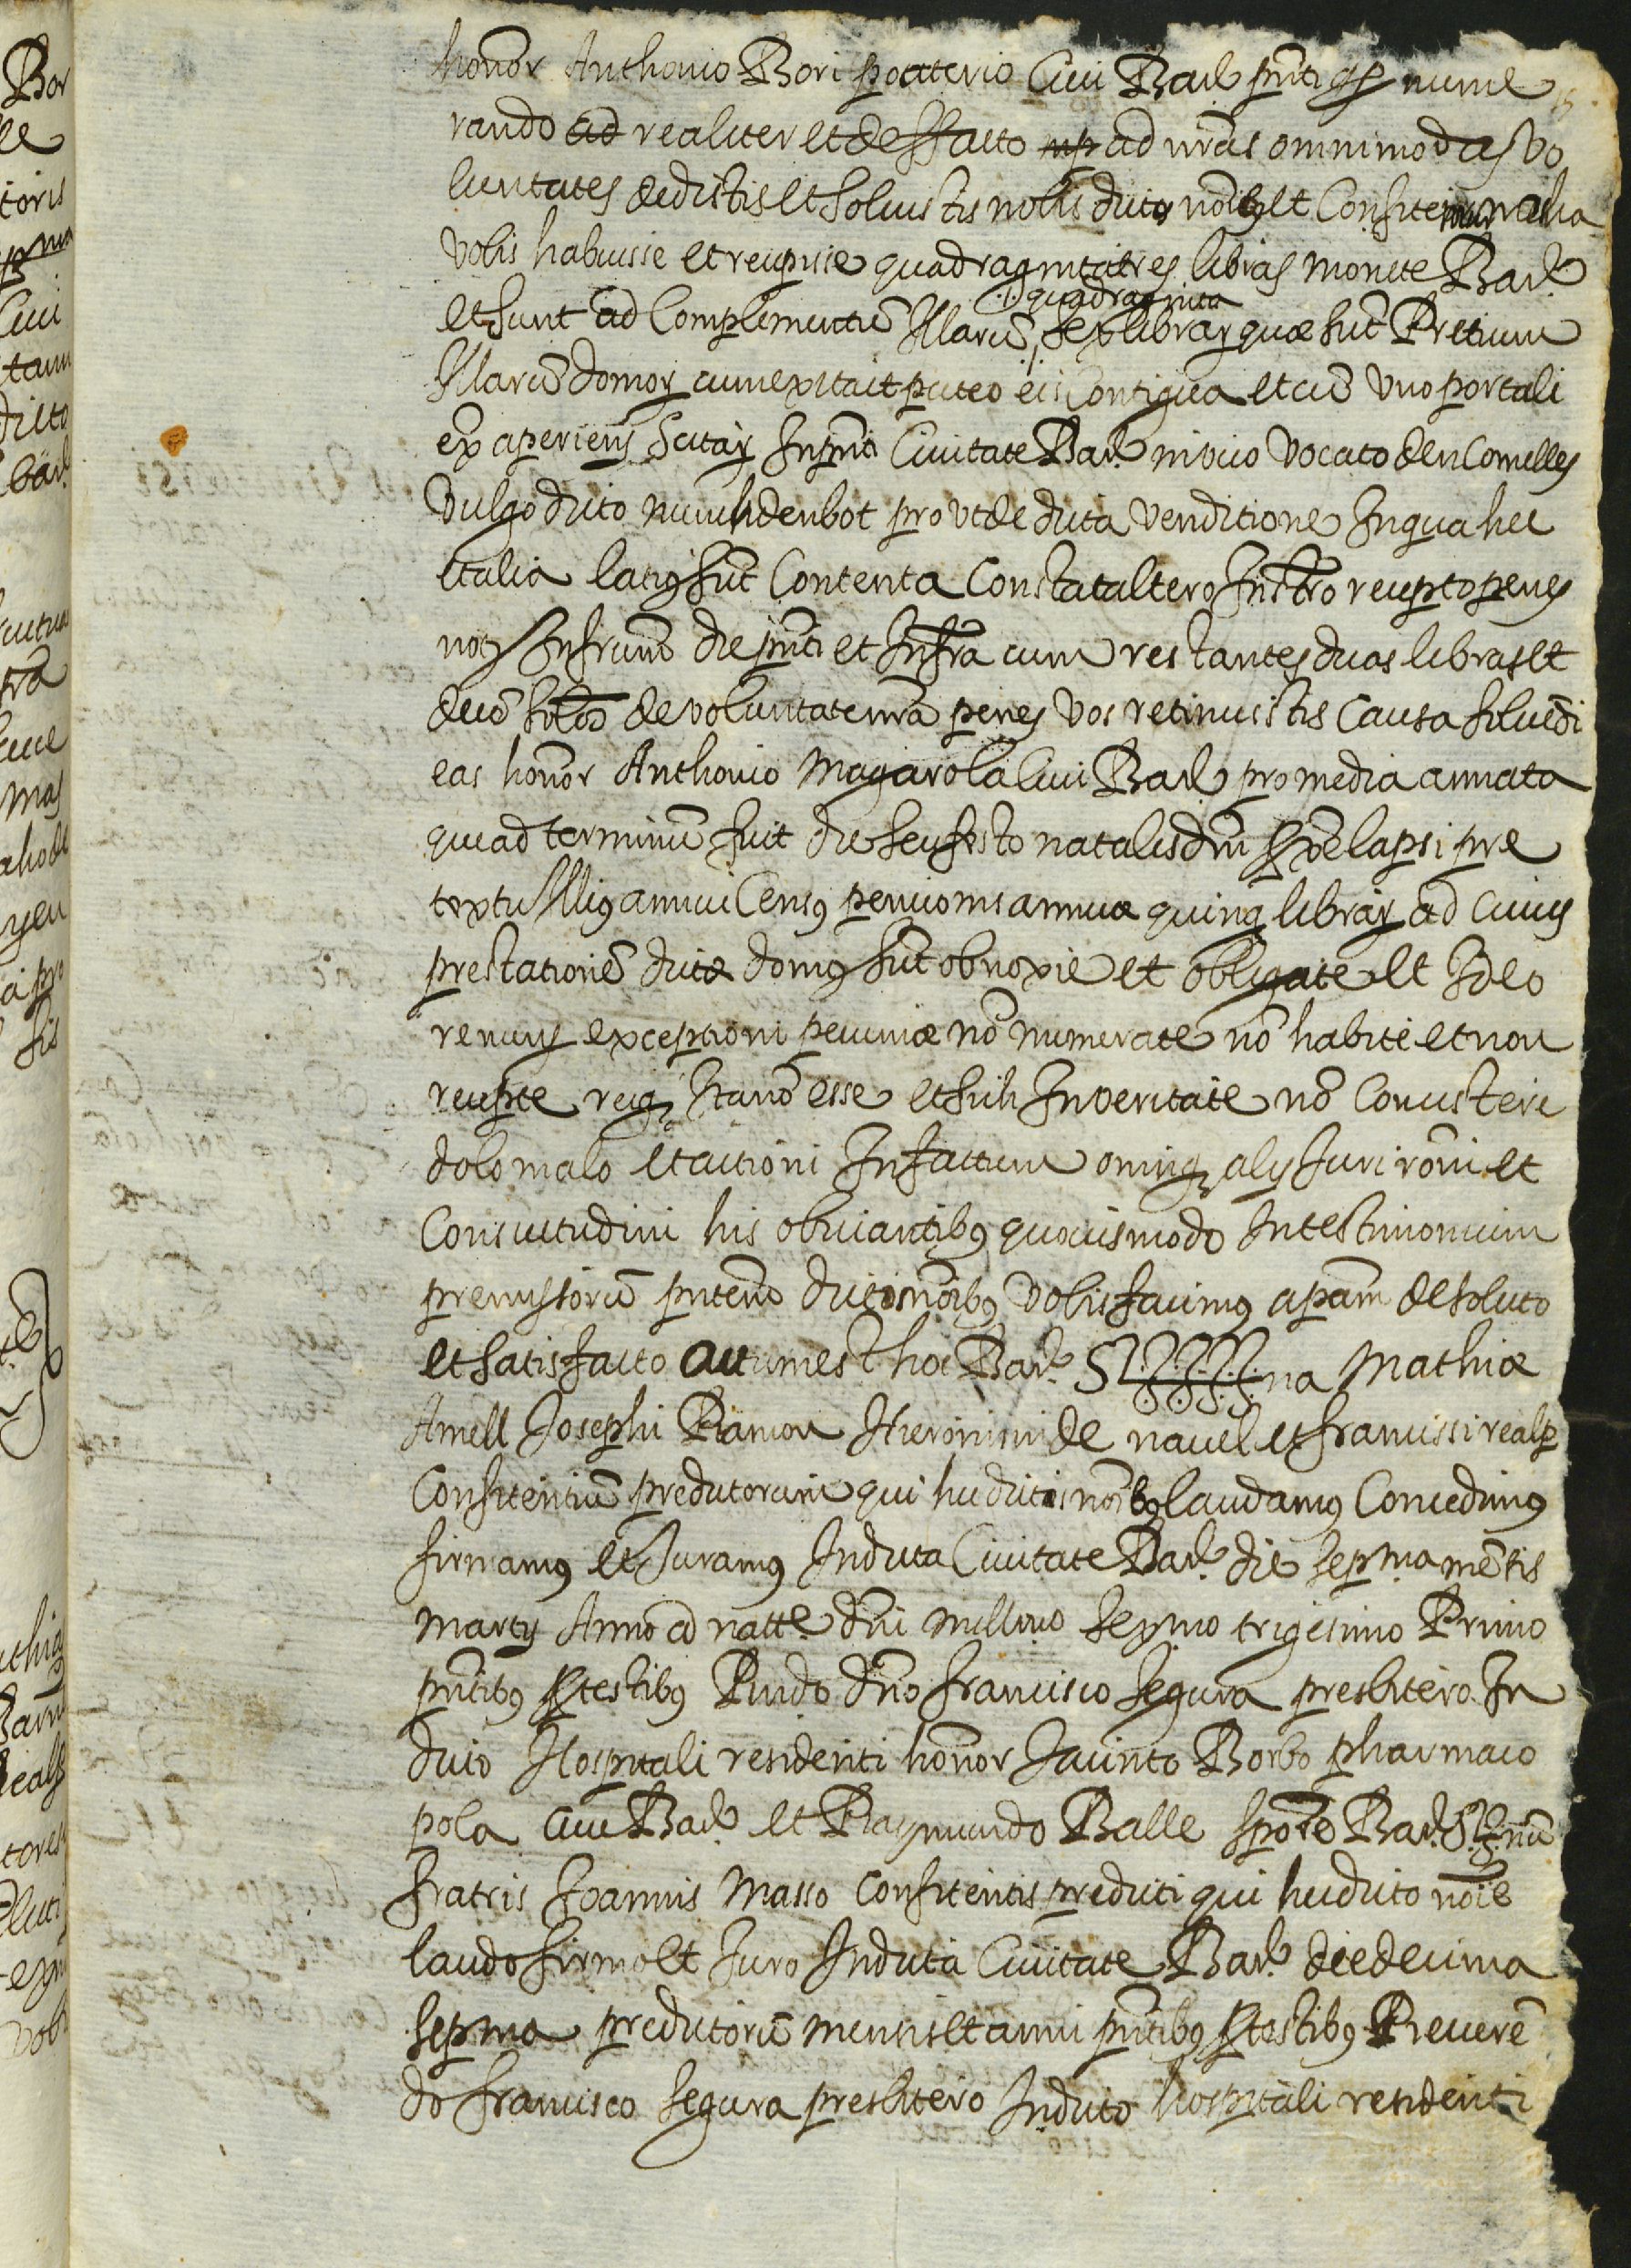 honor Anthonio Bori potterio Civi Barñe pñti qȝ nume
rando ad realiter et de ffacto ad nr̃as omnimodas vo
luntates dedistis et solvistis nobis dictis noĩbꝯ et Confitemur a
vobis habuisse et recepisse quadraginta tres libras monete Barñe
quadraginta
et sunt ad Complementũ Illarũ sex librarꝝ que sũt Pretium
Illarũ domorꝝ cum exita et puteo eis Contigua et cũ uno portali
extra aperiens Scitarꝝ In pñti Civitate Barñe in vico vocato den Comelles
vulgo dicto den bot pro ut de dicta venditione In qua hec
et alia latiꝯ sũt Contenta Constat altero Instr̃o recepto penes
notȝ Infrũm die pñti et Infra cum restantes duas libras et
decẽ solid de voluntate nr̃a penes vos retinuistis Causa solvẽdi
eas honor Anthonio Magarola Civi Barñe pro media annata
que ad terminũ fuit die seu festo natalis dñi proxẽ lapsi pre
textu Illiꝯ annui Censꝯ pencionis annue quinqȝ librarꝝ ad cuius
prestationẽ dicte domꝯ sũt obnoxie et obligate et Ideo
renuns exceptioni pecunie nõ numerate nõ habite et non
recepte reiqȝ Ita nõ esse et sich In veritate nõ Concistere
dolo malo et actioni In factum omniqȝ alij Juri rõni et
Consuetudini his obviantibꝯ quovis modo In testimonium
premissorũ pñtem dictis noĩbꝯ vobis facimꝯ apam de soluto
et satisfacto actum est hoc Barñe Sig na Mathie
Amell Josephi Ramon Hieronimi de navel et francissi realp
Confitentiũ predictorum qui hec dictis noĩbꝯ laudamꝯ Concedimꝯ
firmamꝯ et Juramꝯ In dicta Civitate Barñe die sepma mẽsis
martij Anno a natte dñi millmo sexmo trigesimo Primo
pñtibꝯ ꝓ testibꝯ Rndo dño francisco segura presbitero In
dicto Hospitali residenti honor Jacinto Borbo pharmaco
pola cive Barñe et Raymundo Balle Barñe Sig nũ
fratris Joannis Masso Confitentis predicti qui hec dicto noĩe
laudo firmo et Juro In dicta Civitate Barñe die decima
sepma predictorũ mensis et anni pñtibꝯ ꝓ testibꝯ Reverẽ
do francisco segura presbitero In dicto hospitali residenti